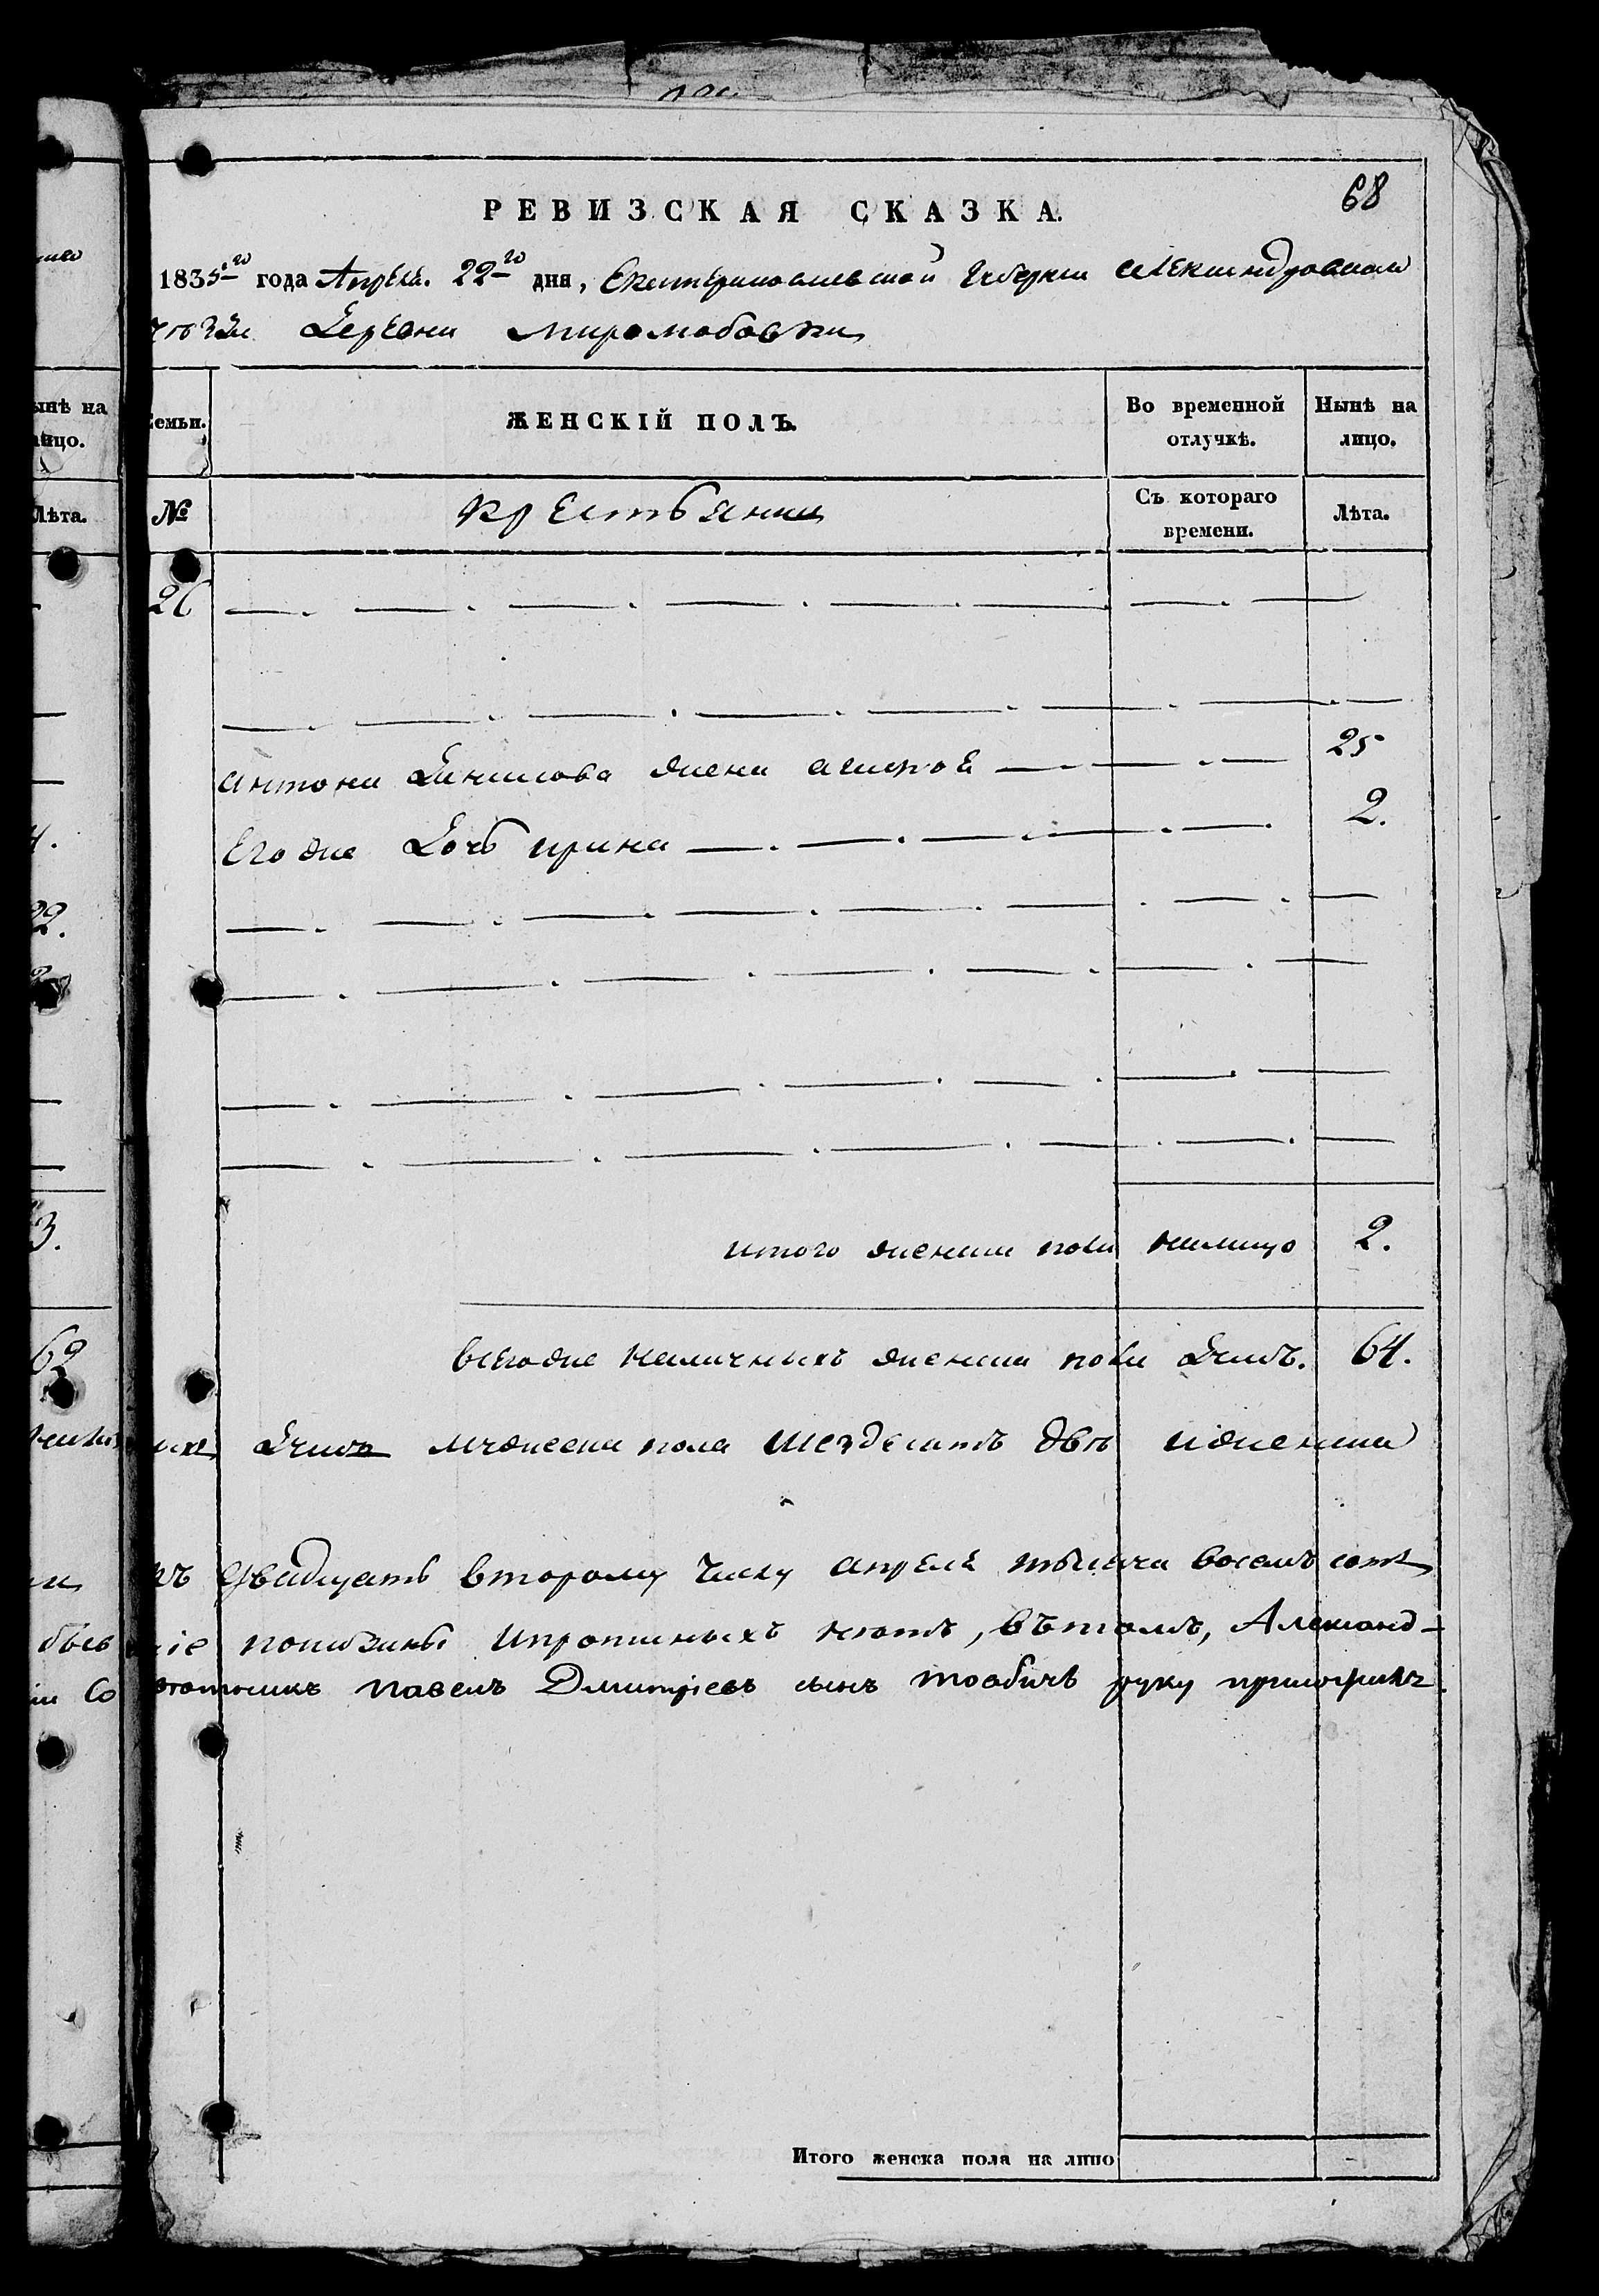 68
РЕВИЗСКАЯ СКАЗКА.
1835го года Апреля. 22го дня, Екатеринославской Губернии Александровскаго
уезда Деревни Миролюбовки
Семьи.
ЖЕНСКІЙ ПОЛЪ.
Во временной отлучкѣ.
Нынѣ на лицо.
№
крестьянки
Съ котораго времени.
Лѣта.
26
Антона Денисова жена 25
Его же дочь ирина 2.
итого женска пола налицо 2.
всего же наличныхъ женска пола душъ. 64.
душъ мужеска пола шездесятъ две и женска
къ двадцать второму числу апреля тысяча восемъ сотъ
и прописныхъ нетъ, въ томъ, Александ-
павелъ Дмитріевъ сынъ руку приложилъ.
Итого женска пола на лицо
ынѣ на
лицо.
Лѣта.
4.
22.
3.
62